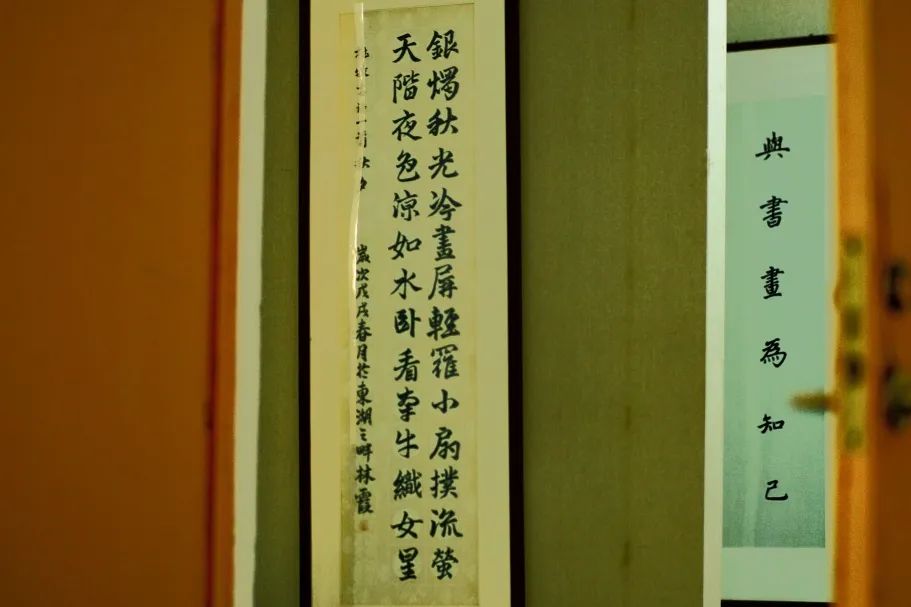 銀燭秋光冷畫屏輕羅小扇撲流螢
天階夜色涼如水卧看牽牛織女星
歲次戊戌春月於東湖之畔林霞
與書畫為知己